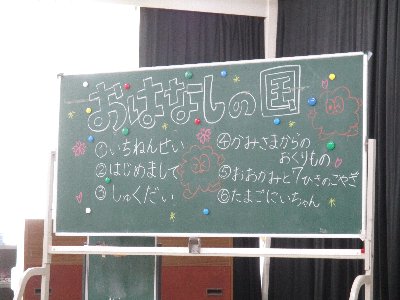 おはなしの国
①いちねんせい
②はじめまして
③しゅくだい
④かみさまからの
おくりもの
⑤おおかみと7ひきのこやぎ
⑥たまごにいちゃん